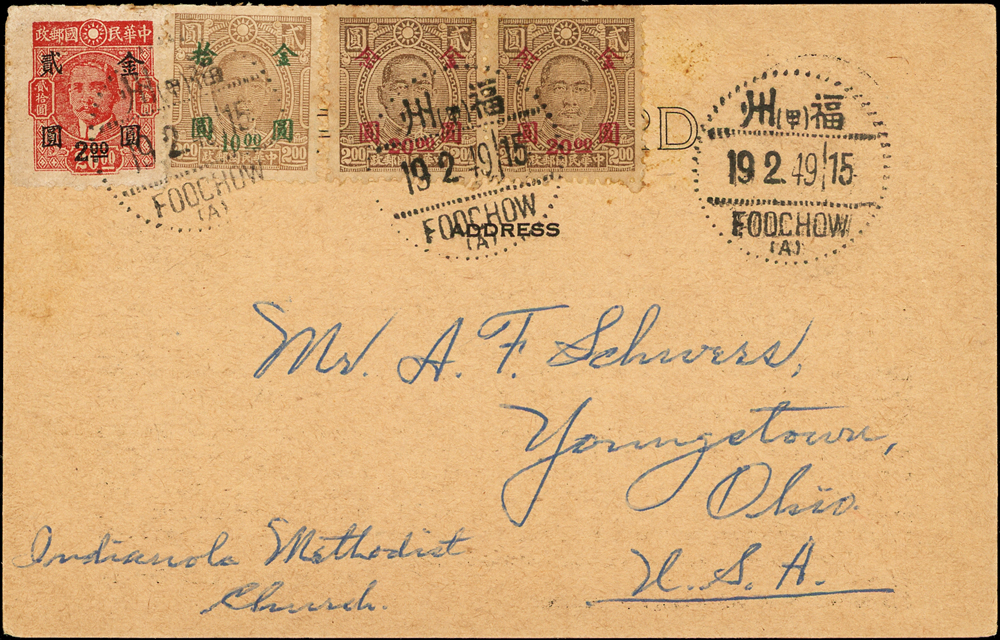 政郵國民華中
貳 金
貳拾圓 貳拾圓
圓 圓
2.00
20.00
拾 金
圓 圓
10.00
政郵民國華中
2.00
圓 貳
金
圓 圓
20.00
2.00 政郵民國華中 2.00
圓 貳
金
圓 圓
20.00
2.00 政郵民國華中 2.00
D
19 2 15
FOOCHOW
(A)
州(甲)福
19 2 49 15
FOOCHOW
(A)
州(甲)福
19 2 49 15
FOOCHOW
(A)
ADDRESS
Mr. A. F. Schwers,
Youngstown,
Ohio.
U. S. A.
Indianola Methodist
Church.